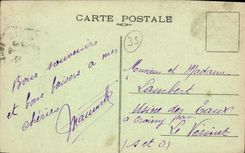 CARTE POSTALE
35
Bons souvenirs
et bons baisers à mes
chéries
Monsieur et Madame
Lambert
Usine des Eaux
à Croissy par
Le Vésinet
(S et O)